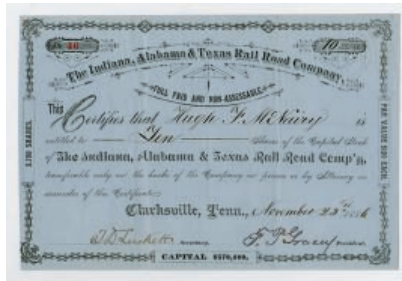 No. 46 10
The Indiana, Alabama & Texas Rail Road Company,
FULL PAID AND NON-ASSESSABLE
This Certifies that Hugh F. is
entitled to Ten Shares of the Capital Stock
of The Indiana, Alabama & Texas Rail Road Comp'y,
transferable only on the books of the Company in person or by Attorney on
surrender of this Certificate.
Clarksville, Tenn., November 23rd 1886
CAPITAL
SHARES.
PAR VALUE EACH.